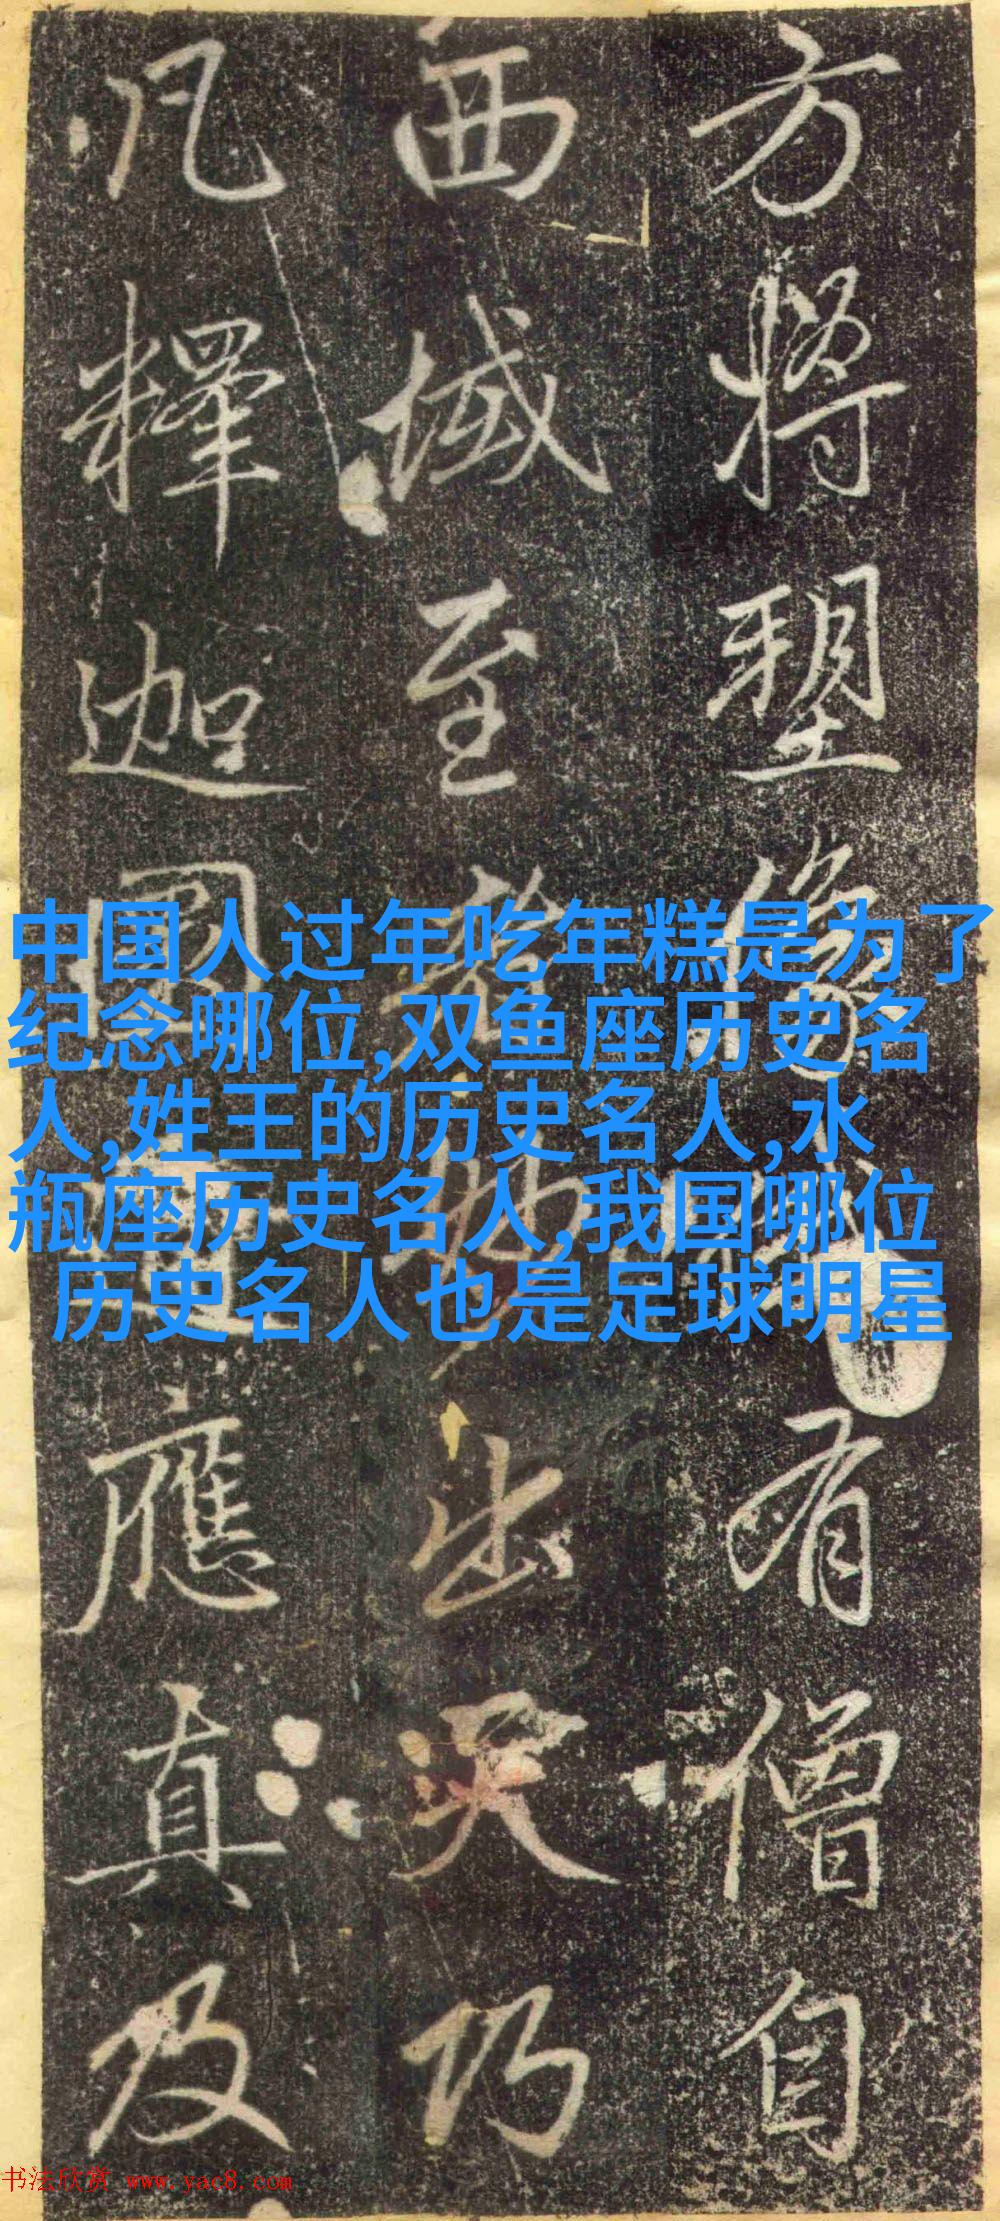 方將塑像有僧自
西域至出乃
凡釋迦應真及
中国人过年吃年糕是为了
纪念哪位,双鱼座历史名
人,姓王的历史名人,水
瓶座历史名人,我国哪位
历史名人也是足球明星
书法欣赏 www.yac8.com